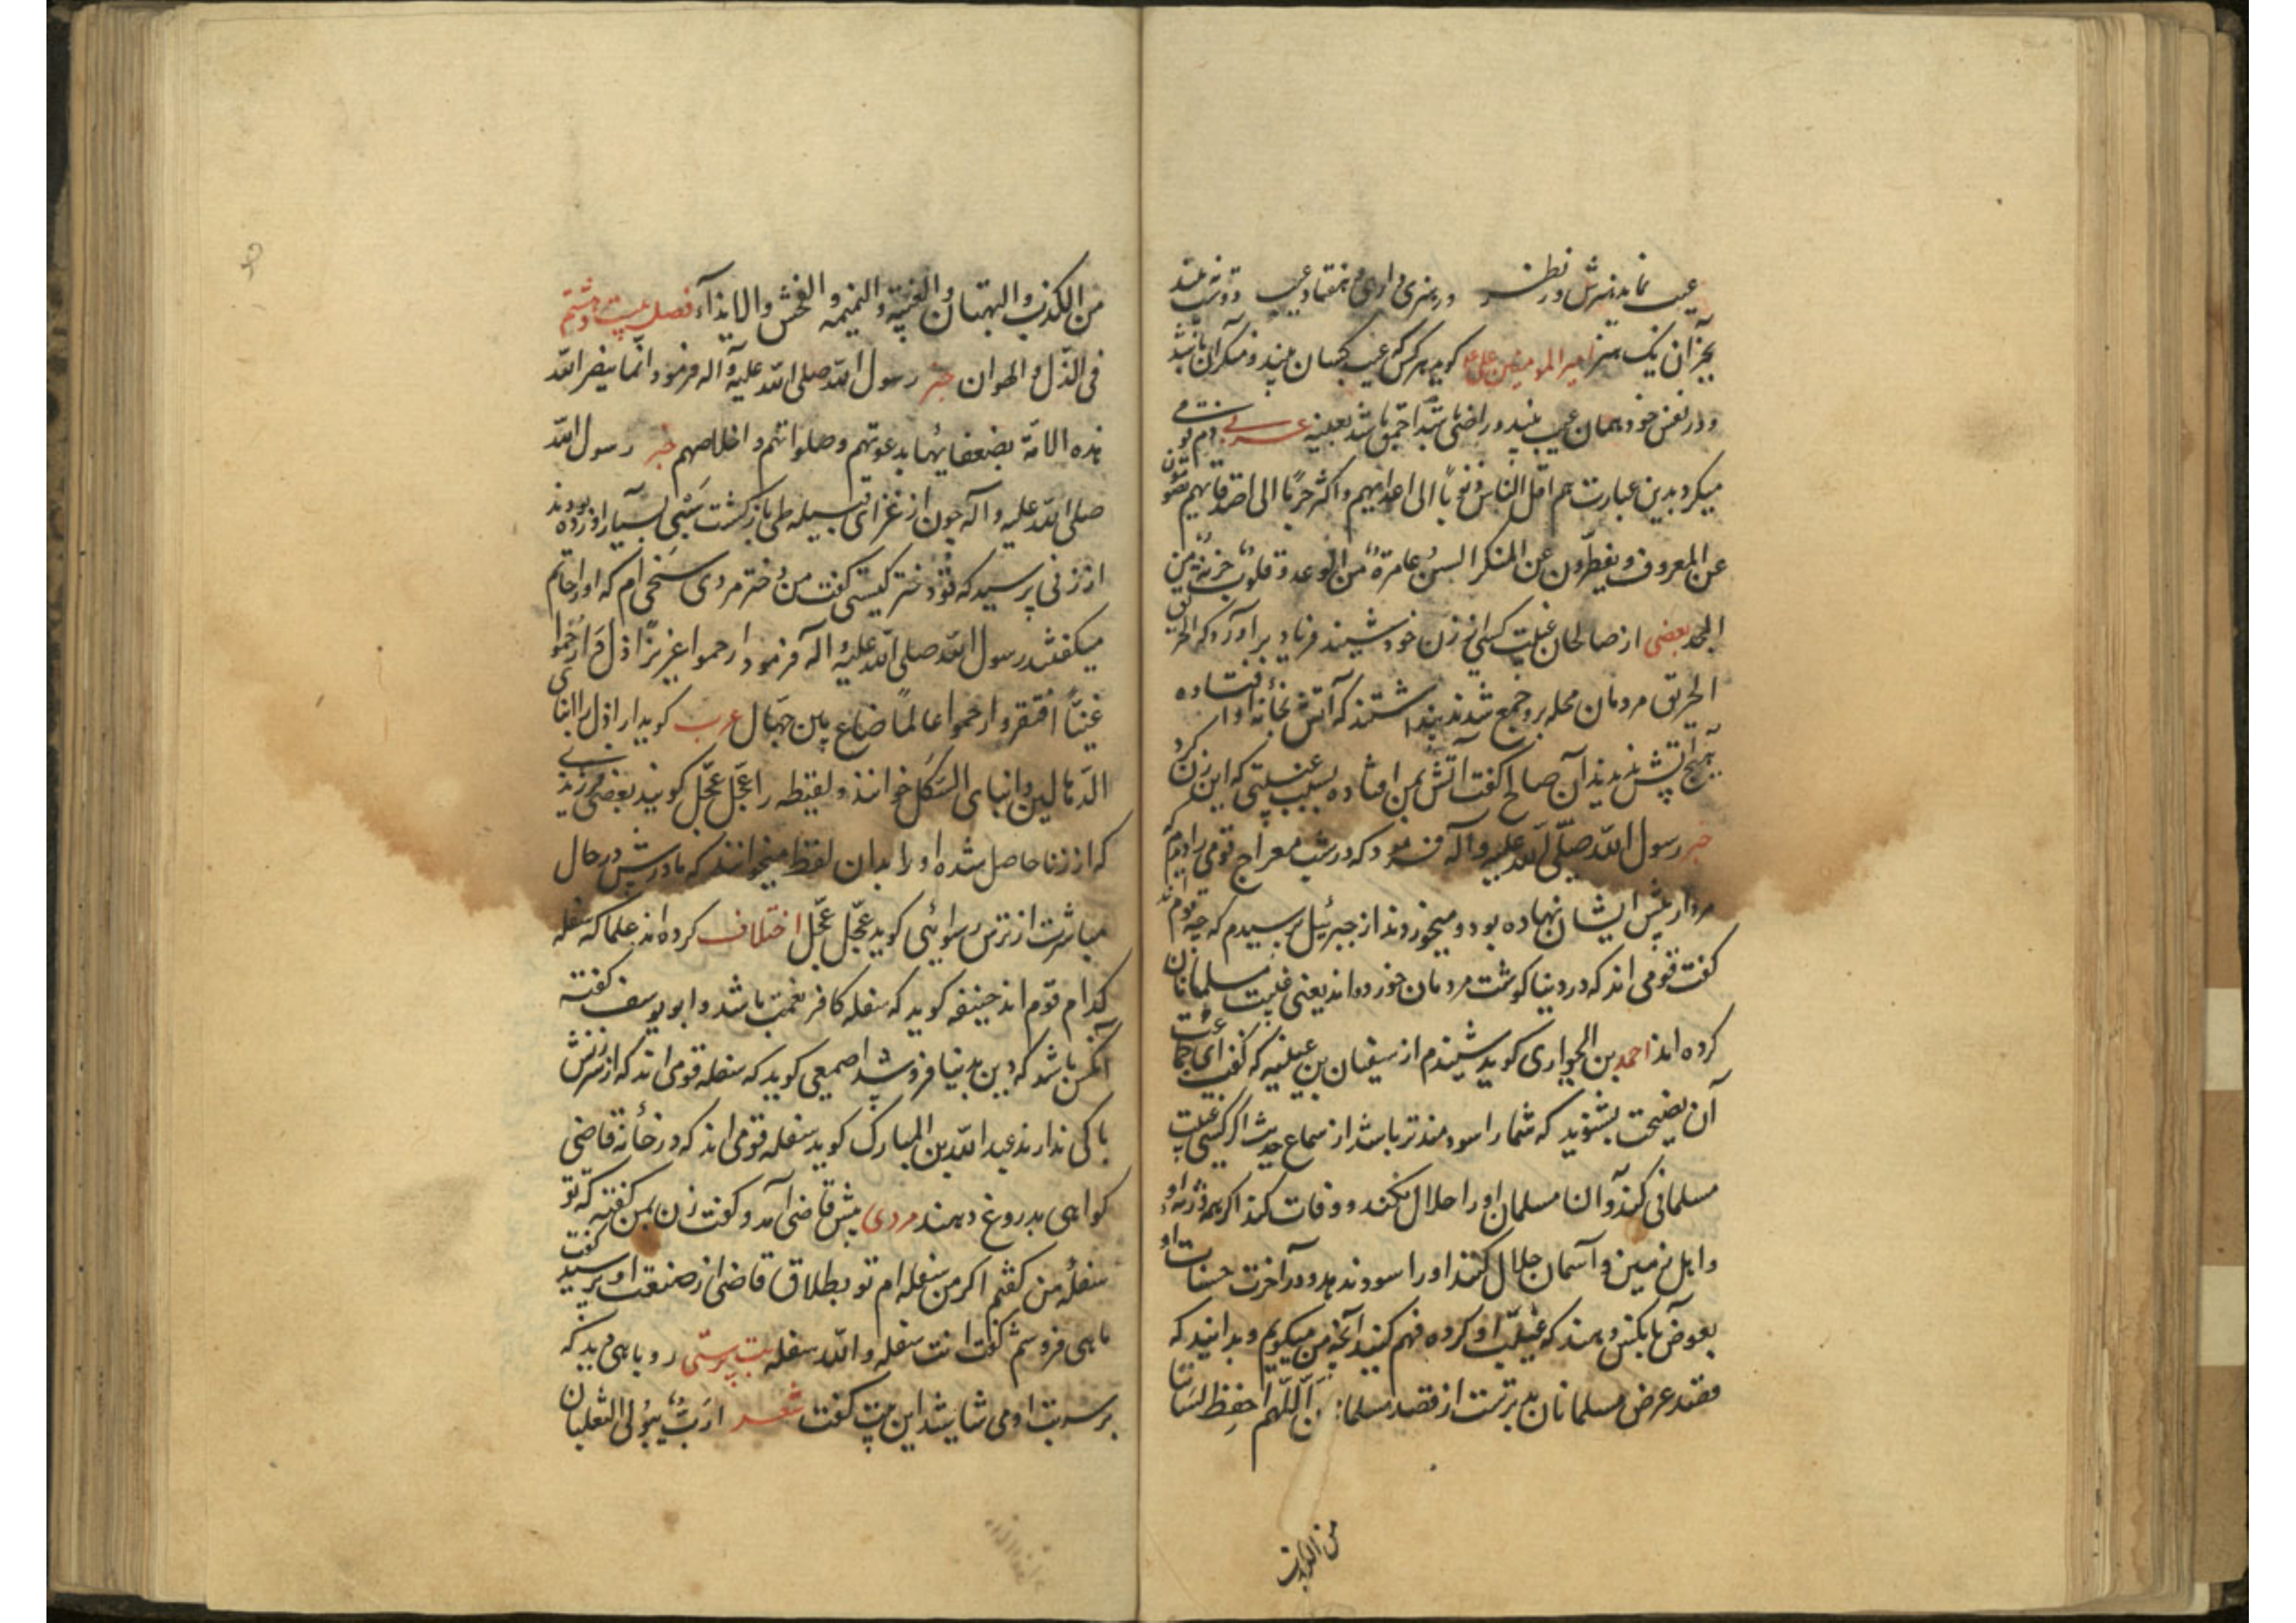 عیب نماید هنرش در نظر ور هنری داری و هفتاد عیب دوست نبیند
بجز آن یک هنر امیر المومنین علی ع کوید هر کس که عیب کسان بیند و منکر آن باشد
و در نفس خود همان عیب بیند و راضی باشد احمق باشد بعینه عربی ذم قومی
میکرد بدین عبارت هم اقل الناس ذنوبا الی اعدایهم و اکثر جرما الی اصدقایهم یصومون
عن المعروف و یفطرون عن المنکر السن عامرة من الوعد و قلوب خربة من
المجد بعضی از صالحان غیبت کسی از زن خود شنید فریاد برآورد که الحریق
الحریق مردمان محله برو جمع شدند پنداشتند که آتش بخانه او افتاده
هیچ آتش ندیدند آن صالح کفت آتش بمن افتاده بسبب غیبتی که این زن کرد
خبر رسول الله صلی الله علیه و آله فرمود که در شب معراج قومی را دیدم که
مردار پیش ایشان نهاده بود و میخوردند از جبرئیل پرسیدم که چه قوم اند
کفت قومی اند که در دنیا کوشت مردمان خورده اند یعنی غیبت مسلمانان
کرده اند احمد بن الحواری کوید شنیدم از سفیان بن عیینه که کفت ای جماعت
آن نصیحت بشنوید که شما را سودمندتر باشد از سماع حدیث اکر کسی غیبت
مسلمانی کند و آن مسلمان او را حلال نکند و وفات کند اکر همه ورثه او
و اهل زمین و آسمان حلال کنند او را سود ندهد و در آخرت حسنات او
بعوض بآنکس دهند که غیبت او کرده فهم کنید آنچه من میکویم و بدانید که
قصد عرض مسلمانان بدترست از قصد مسلمانان اللهم احفظ لساننا
من الکذب
من الکذب و البهتان و الغیبة و النمیمه و الفحش و الایذآء فصل بیست و هشتم
فی الذل و الهوان خبر رسول الله صلی الله علیه و آله فرمود انما ینصر الله
هذه الامة بضعفایها بدعوتهم و صلواتهم و اخلاصهم خبر رسول الله
صلی الله علیه و آله چون از غزای قبیله طی بازکشت سبی بسیار آورده بودند
از زنی پرسید که تو دختر کیستی کفت من دختر مردی سخی ام که او را حاتم
میکفتند رسول الله صلی الله علیه و آله فرمود ارحموا عزیزا ذل و ارحموا
غنیا افتقر و ارحموا عالما ضاع بین جهال عرب کوید اراذل را ابنای
الدهالیز و ابنای السکک خوانند و لقیطه را عجل عجل کویند یعنی فرزندی
که از زنا حاصل شده او را بدان لفظ میخوانند که مادرش در حال
مباشرت از ترس رسوائی کوید عجل عجل اختلاف کرده اند علما که سفله
کدام قوم اند حنیفه کوید که سفله کافر نعمت باشد و ابو یوسف کفته
آنکس باشد که دین بدنیا فروشد اصمعی کوید که سفله قومی اند که از سرزنش
باکی ندارند عبد الله بن المبارک کوید سفله قومی اند که در خانه قاضی
کواهی بدروغ دهند مردی پیش قاضی آمد و کفت زن بمن کفته که تو
سفله من کفتم اکر من سفله ام تو بطلاق قاضی از صنعت او پرسید کفت
ماهی فروشم کفت انت سفله و الله سفله بت پرستی روباهی دید که
بر سر بت او می شاشید این بیت کفت شعر ارب یبول الثعلبان